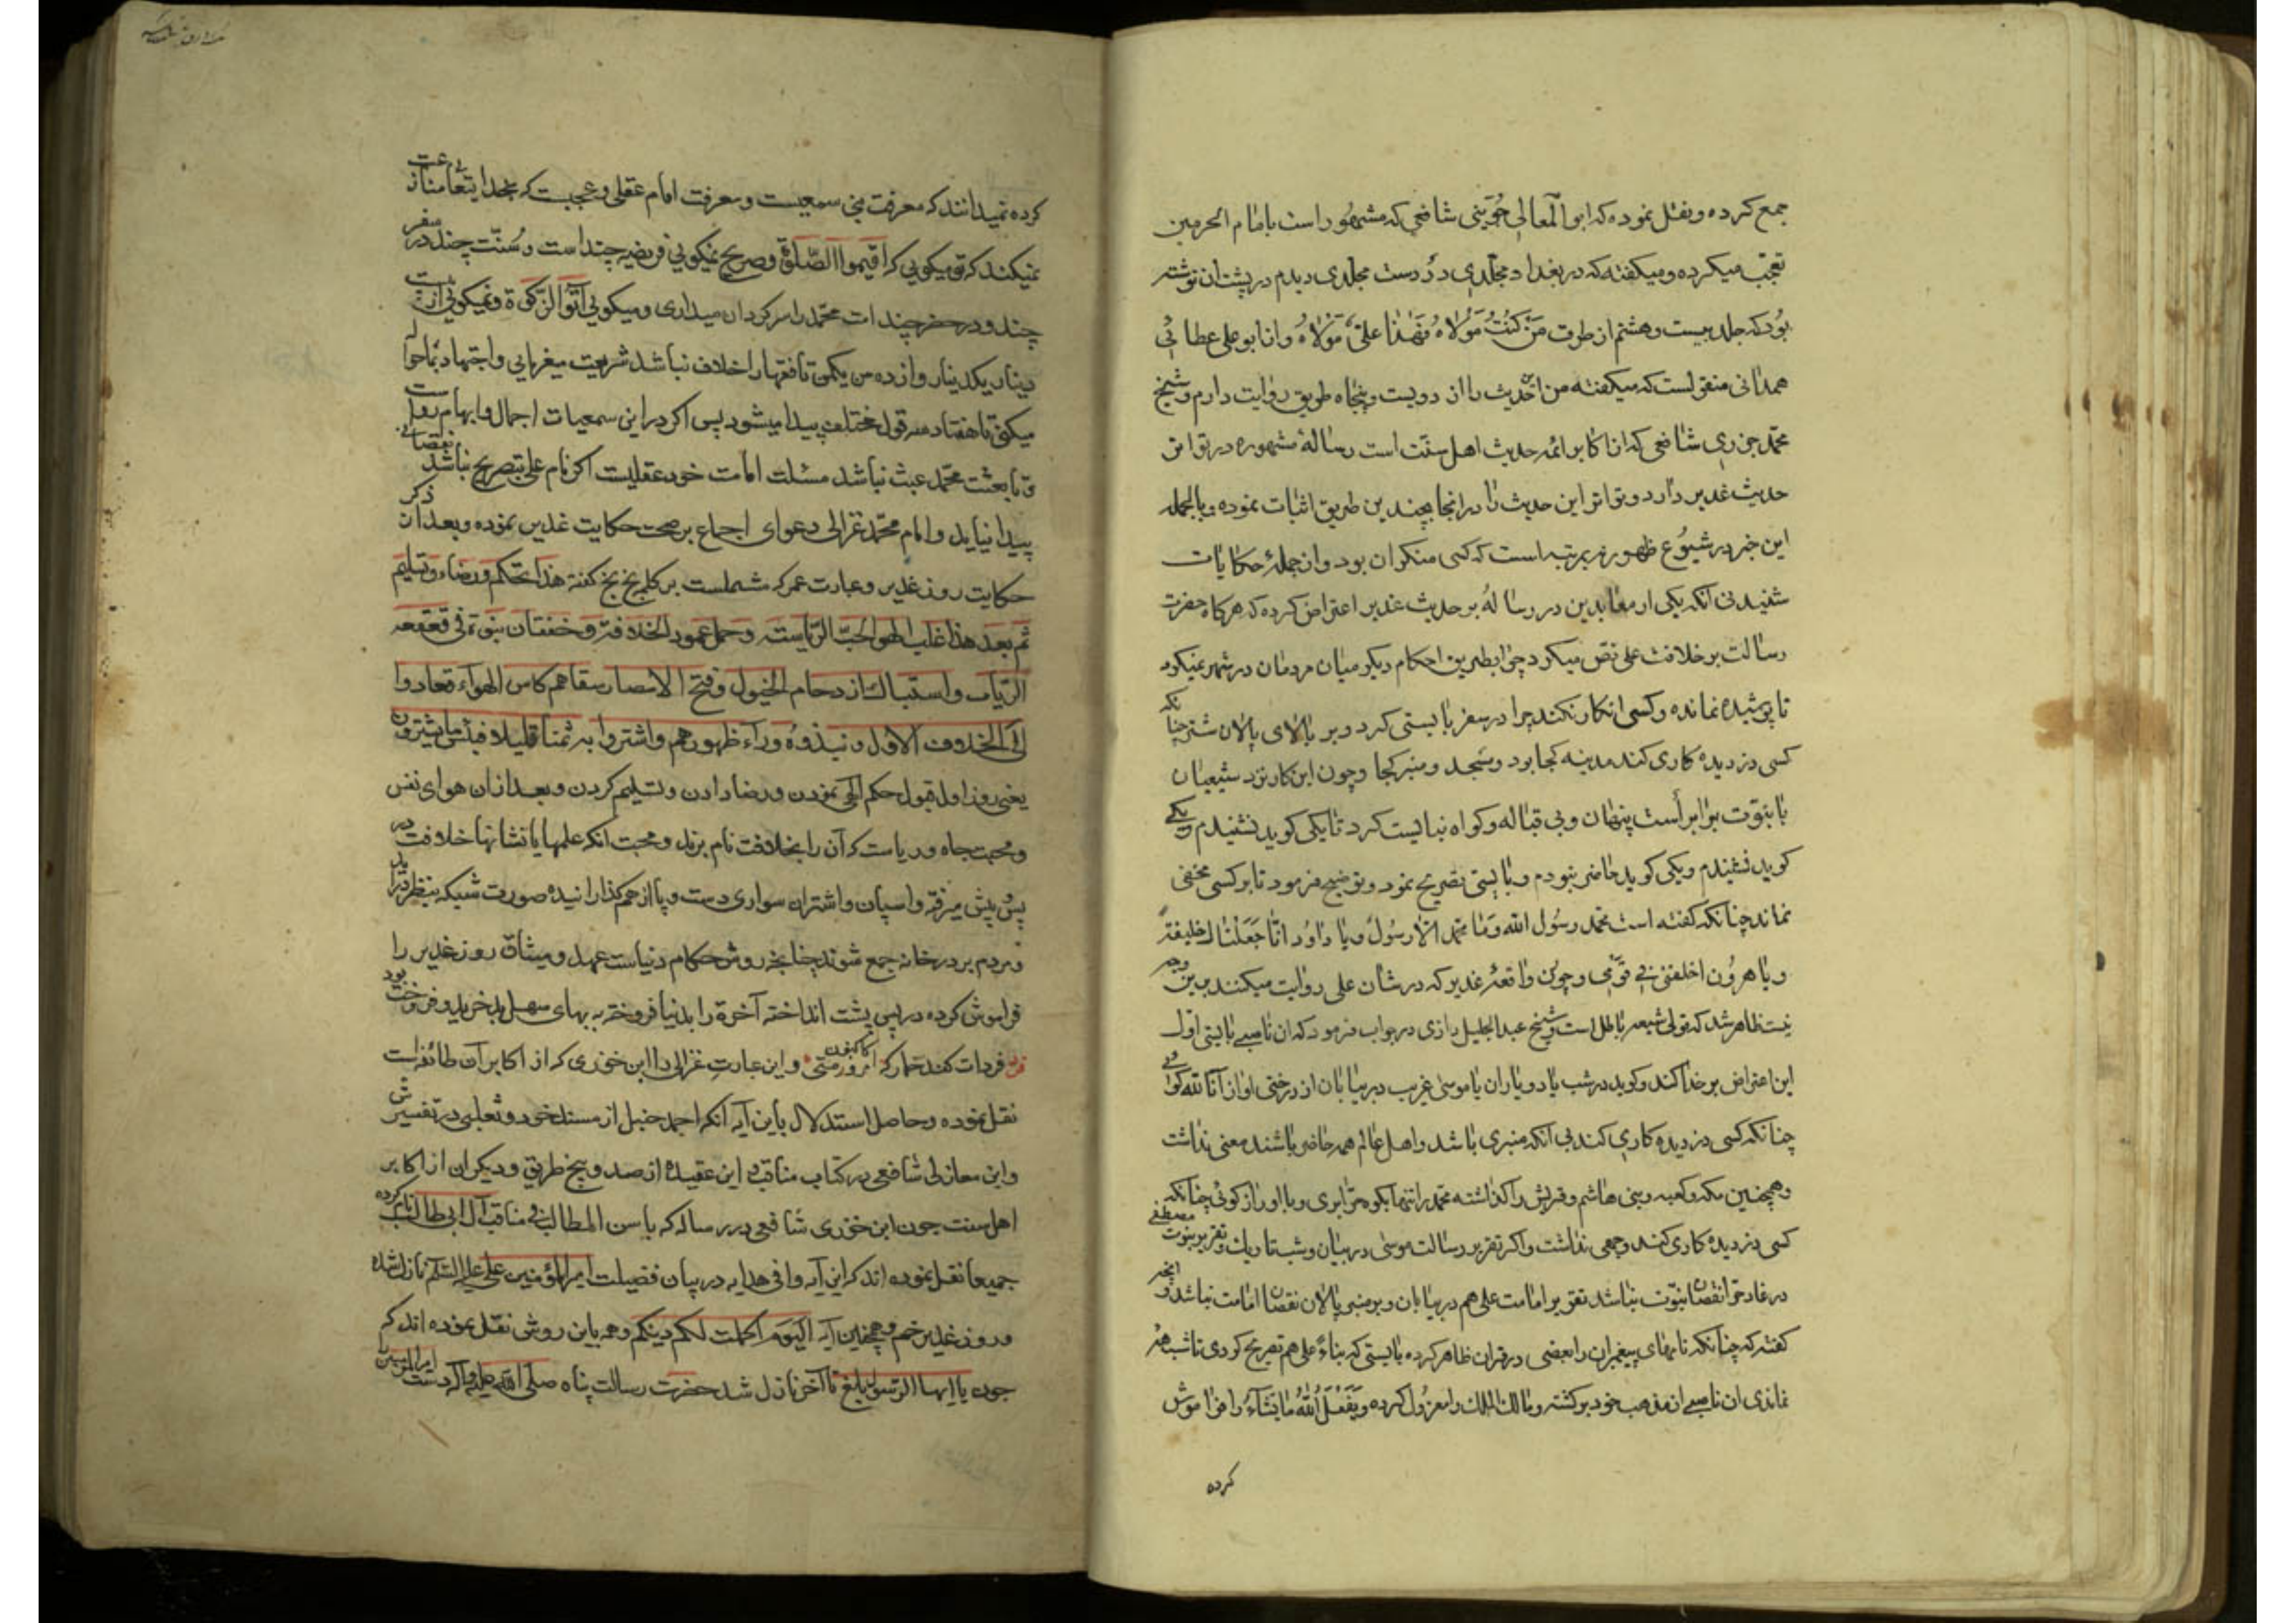 جمع کرده و نقل نموده که ابو المعالی جوینی شافعی که مشهور است بامام الحرمین
تعجب میکرده و میکفته که در بغداد مجلدی در دست مجلدی دیدم در پشت ان نوشته
بود که جلد بیست و هشتم از طرق مَن کُنتُ مَولاهُ فَهٰذا علیٌّ مَولاهُ و از ابو علی عطائی
همدانی منقولست که میکفته من این حدیث را از دویست و پنجاه طریق روایت دارم و شیخ
محمد جزری شافعی که از اکابر ائمه حدیث اهل سنت است رسالهٔ مشهوره در تواتر
حدیث غدیر دارد و تواتر این حدیث را در انجا بچندین طریق اثبات نموده و بالجمله
این خبر در شیوع ظهور نه بمرتبه است که کسی منکر ان بود و از جملهٔ حکایات
شنیدنی آنکه یکی از معاندین در رسالهٔ بر حدیث غدیر اعتراض کرده که هرکاه حضرت
رسالت بر خلافت علی نص میکرد چرا بطریق احکام دیکر میان مردمان در شهر نمیکرد
تا پوشیده نمانده و کسی انکار نکند چرا در سفر بایستی کرد و بر بالای پالان شتر چنانکه
کسی دزدیده کاری کند مدینه کجا بود و مسجد و منبر کجا و چون این کار نزد شیعیان
با نبوت برابر است پنهان و بی قباله و کواه نبایست کرد تا یکی کوید نشنیدم و یکی
کوید نشنیدم و یکی کوید حاضر نبودم و بایستی تصریح نمود و توضیح فرمود تا بر کسی مخفی
نماند چنانکه کفته است محمد رسول الله و ما محمد الا رسول و یا داود انا جعلناک خلیفة
و یا هرون اخلفنی فی قومی و چون واقعهٔ غدیر که در شان علی روایت میکنند برین وجه
نیست ظاهر شد که قول شیعه باطل است و شیخ عبد الجلیل رازی در جواب فرمود که ان ناصبی بایستی اول
این اعتراض بر خدا کند و کوید در شب با دو یاران با موسی غریب در بیابان از درختی اواز انا الله
چنانکه کسی دزدیده کاری کند بی آنکه منبری باشد و اهل عالم همه حاضر باشند معنی نداشت
و همچنین مکه و کعبه و بنی هاشم و قریش را کذاشته محمد را تنها بکوه حرا بری و با او راز کوئی چنانکه
کسی دزدیده کاری کند وجهی نداشت و اکر تقریر رسالت موسی در بیابان و شب تاریک و تقریر نبوت مصطفی
در غار حرا نقصان نبوت نباشد تقریر امامت علی هم در بیابان و بر منبر پالان نقصان امامت نباشد و انچه
کفته که چنانکه نامهای پیغمبران را بعضی در قران ظاهر کرده بایستی که بنام علی هم تصریح کردی تا شبهه
نماندی ان ناصبی از مذهب خود برکشته و مالک الملک را معزول کرده و یفعل الله ما یشاء را فراموش
کرده
کرده نمیدانند که معرفت سمعیست و معرفت امام عقلی و عجبست که بخدایتعالی
نمیکند که تو میکویی که اقیموا الصلوة و صریح نمیکویی فریضه چند است و سنت چند در سفر
چند و در حضر چند امت محمد را سرکردان میداری و میکویی آتوا الزکوة و نمیکویی از بیست
دینار یکدینار و از ده من یکمن تا فقها را خلاف نباشد شریعت میفرمایی و اجتهاد بما حواله
میکنی تا هفتاد و سه قول مختلف پیدا میشود پس اکر در این سمعیات اجمال و ابهام روا است
و تابعثت محمد عبث نباشد مسئلت امامت خود عقلیست اکر نام علی بتصریح نباشد نقصانی
پیدا نیاید و امام محمد غزالی دعوای اجماع بر صحت حکایت غدیر نموده و بعد از ذکر
حکایت روز غدیر و عبارت عمر که مشتملست بر کلمهٔ بخ بخ کفته هذا تحکم و رضاء و تسلیم
ثم بعد هذا غلب الهوا حب الریاسة و حمل عمود الخلافة و خفقان بنود فی قعقعة
الریات و استباک ازدحام الخیول و فتح الامصار سقاهم کاس الهواء فعادوا
الی الخلاف الاول و نبذوه وراء ظهورهم و اشتروا به ثمنا قلیلا فبئس ما یشترون
یعنی روز اول قبول حکم الهی نمودن و رضا دادن و تسلیم کردن و بعد از ان هوای نفس
و محبت جاه و ریاست که آن را بخلافت نام برند و محبت انکه علمها یا نشانها خلافت در
پس و پیش میرفته و اسپان و اشتران سواری دست و پا از هم کذارانیده صورت شبکه بنظر در آید
و مردم بر در خانه جمع شوند چنانچه روش حکام دنیاست عهد و میثاق روز غدیر را
فراموش کرده در پس پشت انداخته آخرة را بدنیا فروخته به بهای سهل بد خرید و فروخت بود
فردات کند خمار که اکنون مستی و این عبارت غزالی را ابن جوزی که از اکابر آن طائفه است
نقل نموده و حاصل استدلال باین آیه آنکه احمد حنبل از مسند خود و ثعلبی در تفسیرش
و ابن مغازلی شافعی در کتاب مناقب این عقیده از صد و پنج طریق و دیکران از اکابر
اهل سنت چون ابن جوزی شافعی در رساله که باسن المطالب فی مناقب آل ابی طالب نام کرده
جمیعا نقل نموده اند که این آیه وافی هدایه در بیان فضیلت امیر المؤمنین علی علیه السلام نازل شده
و روز غدیر خم و همچنین آیه الیوم اکملت لکم دینکم و همه باین روش نقل نموده اند که
چون یا ایها الرسول بلغ تا آخر نازل شد حضرت رسالت پناه صلی الله علیه و آله دست امیر المؤمنین